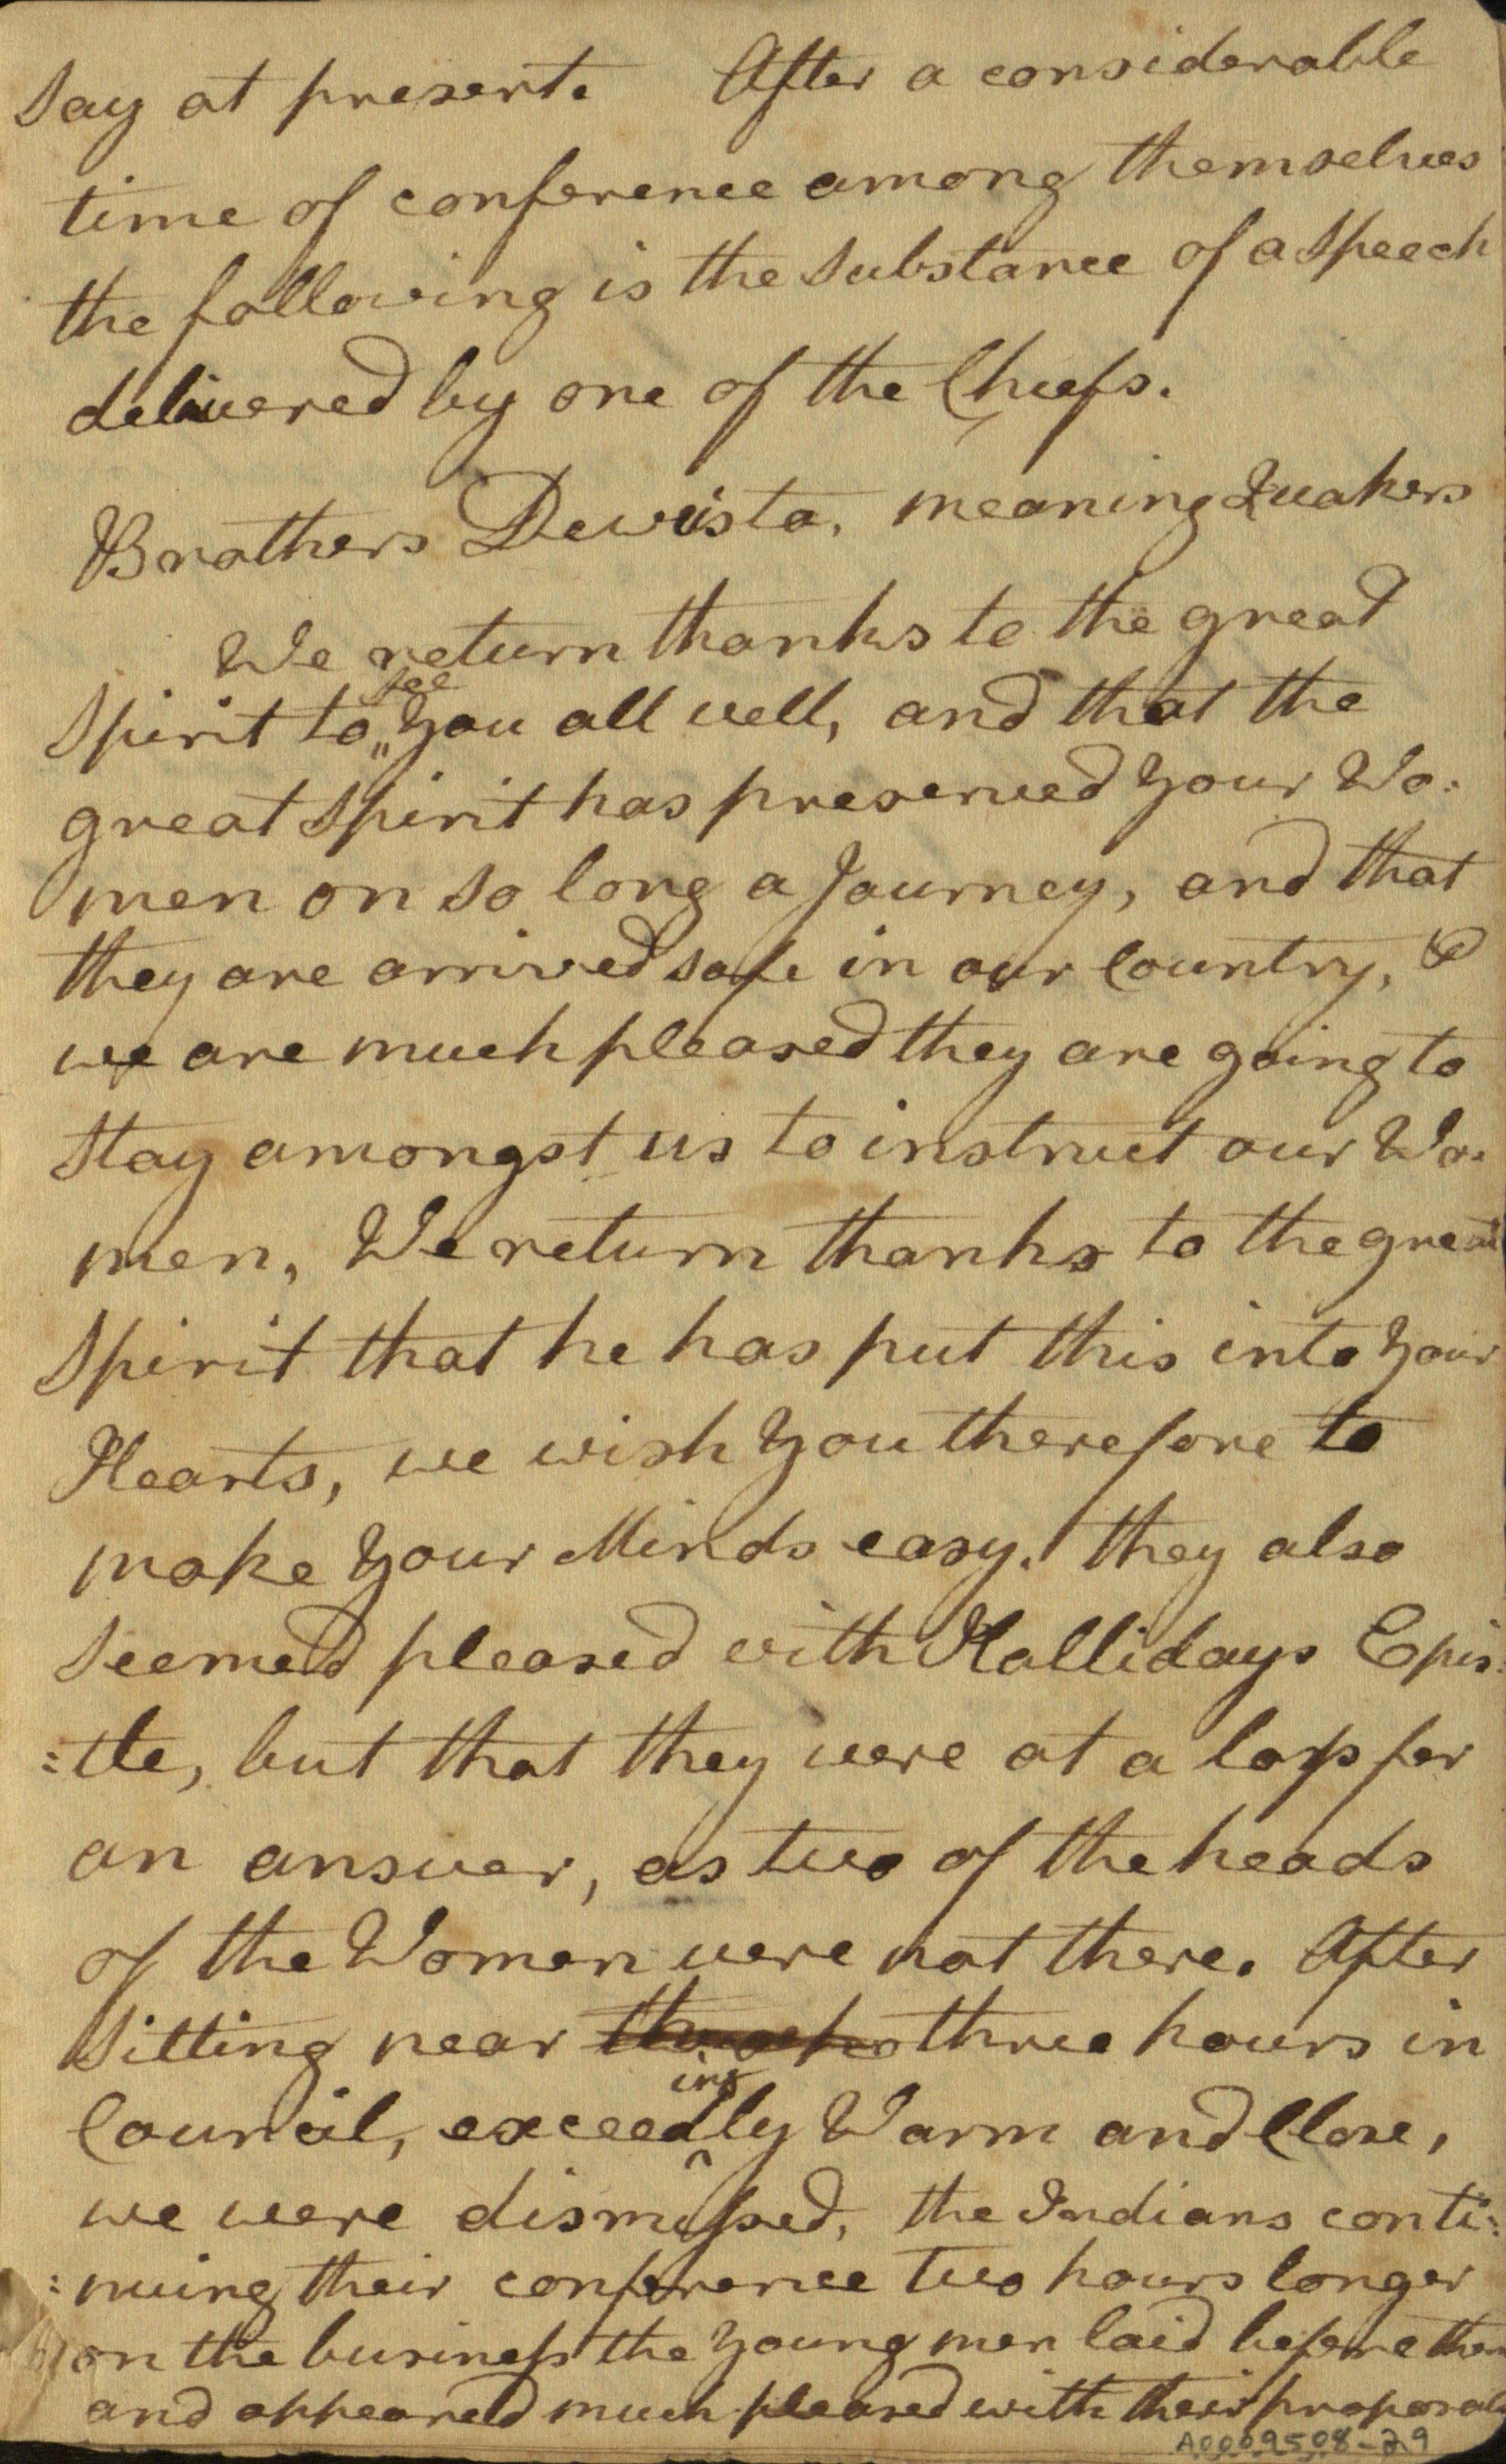 Say at present. After a considerable
time of conference among themselves
the following is the Substance of a Speech
delivered by one of the Chiefs.
Brothers Dewista, meaning Quakers
We return thanks to the great
see
Spirit to„ you all well, and that the
great Spirit has preserved your Wo:
men on so long a Journey, and that
they are arrived safe in our Country, &
we are much pleased they are going to
Stay amongst us to instruct our Wo.
men, We return thanks to the great
Spirit that he has put this into your
Hearts, we wish you therefore to
make your Minds easy. they also
Seemed pleased with Hallidays Epis:
:tle, but that they were at a loss for
an answer, as two of the heads
of the Women were not there. After
Sitting near three hours in
ing
Council, exceed^ly Warm and Close,
we were dismissed, the Indians conti:
:nuing their conference two hours longer
on the business the young men laid before them
and appeared much pleased with their proposals
A0009508-29